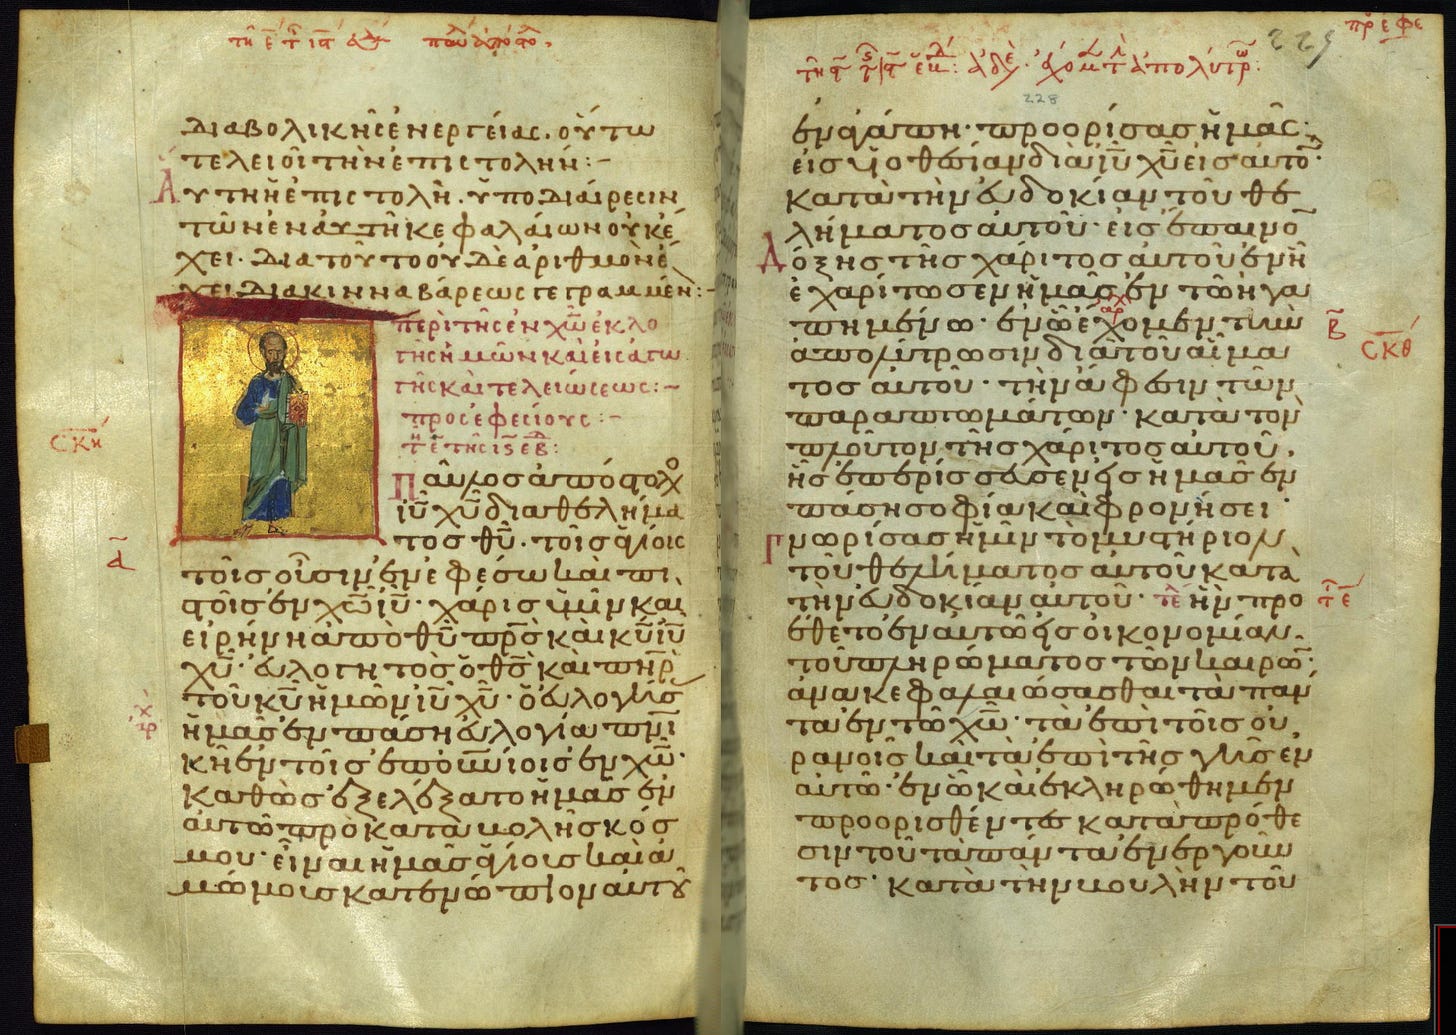 διαβολικῆς ἐνεργείας. οὕτω
τελειοῖ τὴν ἐπιστολήν:~
Αὕτη ἡ ἐπιστολὴ. ὑποδιαίρεσιν
τῶν ἐν αὐτῇ κεφαλαίων οὐκ ἔ
χει. διατοῦτο οὐδὲ ἀριθμὸν ἔ
χει διακινναβάρεως γεγραμμέν:-
περὶ τῆς ἐν χω̅ ἐκλο
γῆς ἡμῶν καὶ εἰσαγω
γῆς καὶ τελειώσεως:~
προς ἐφεσίους:~
Παῦλος ἀπόστολ
ιυ̅ χυ̅ διαθελήμα
τος θυ̅· τοῖς ἁγίοις
τοῖς οὖσιν ἐν ἐφέσω καὶ πι
στοῖς ἐν χω̅ ιυ̅· χάρις ὑμῖν και
εἰρήνη ἀπὸ θυ̅ πρ̅ς καὶ κυ̅ ιυ̅
χυ̅· εὐλογητὸς ὁ θς̅ καὶ πηρ̅
τοῦ κυ̅ ἡμῶν ιυ̅ χυ̅· ὁ εὐλογήσ
ἡμᾶς ἐν πάση εὐλογία πνι̅
κῆ ἐν τοῖς ἐπουνίοις ἐν χω̅·
καθὼς ἐξελέξατο ἡμᾶς ἐν
αὐτῶ πρὸ καταβολῆς κόσ
μου· εἶναι ἡμᾶς ἁγίους καὶ ἀ
μώμους κατενώπιον αὐτου
σκη
α
228
229
ἐν ἀγάπη· προορίσας ἡμᾶς
εἰς υἱοθεσίαν διὰ ιυ̅ χυ̅ εἰς αὐτο̅·
κατὰ τὴν εὐδοκίαν τοῦ θε
λήματος αὐτοῦ· εἰς ἔπαινο̅
δόξης τῆς χάριτος αὐτοῦ ἐν ἧ
ἐχαρίτωσεν ἡμᾶς ἐν τῶ ἠγα
πημένω· ἐν ὧ ἔχομεν τὴν
ἀπολύτρωσιν διὰ τοῦ αἵμα
τος αὐτοῦ· τὴν ἄφεσιν τῶν
παραπτωμάτων· κατὰ τὸν
πλοῦτον τῆς χάριτος αὐτοῦ.
ἧς ἐπερίσσευσεν εἰς ἡμᾶς ἐν
πάση σοφία καὶ φρονήσει·
γνωρίσας ἡμῖν τὸ μυστήριον
τοῦ θελήματος αὐτοῦ κατα
τὴν εὐδοκίαν αὐτοῦ· ἣν προ
έθετο ἐν αὐτῶ εἰς οἰκονομίαν
τοῦ πληρώματος τῶν καιρω̅·
ἀνακεφαλαιώσασθαι τὰ πάν
τα ἐν τῶ χω̅· τὰ ἐπὶ τοῖς οὐ
ρανοῖς καὶ τὰ ἐπὶ τῆς γῆς ἐν
αὐτῶ· ἐν ὧ καὶ ἐκληρώθημεν
προορισθέντες κατὰ πρόθε
σιν τοῦ τὰ πάντα ἐνεργοῦν
τος· κατὰ τὴν βουλὴν τοῦ
β
σκθ